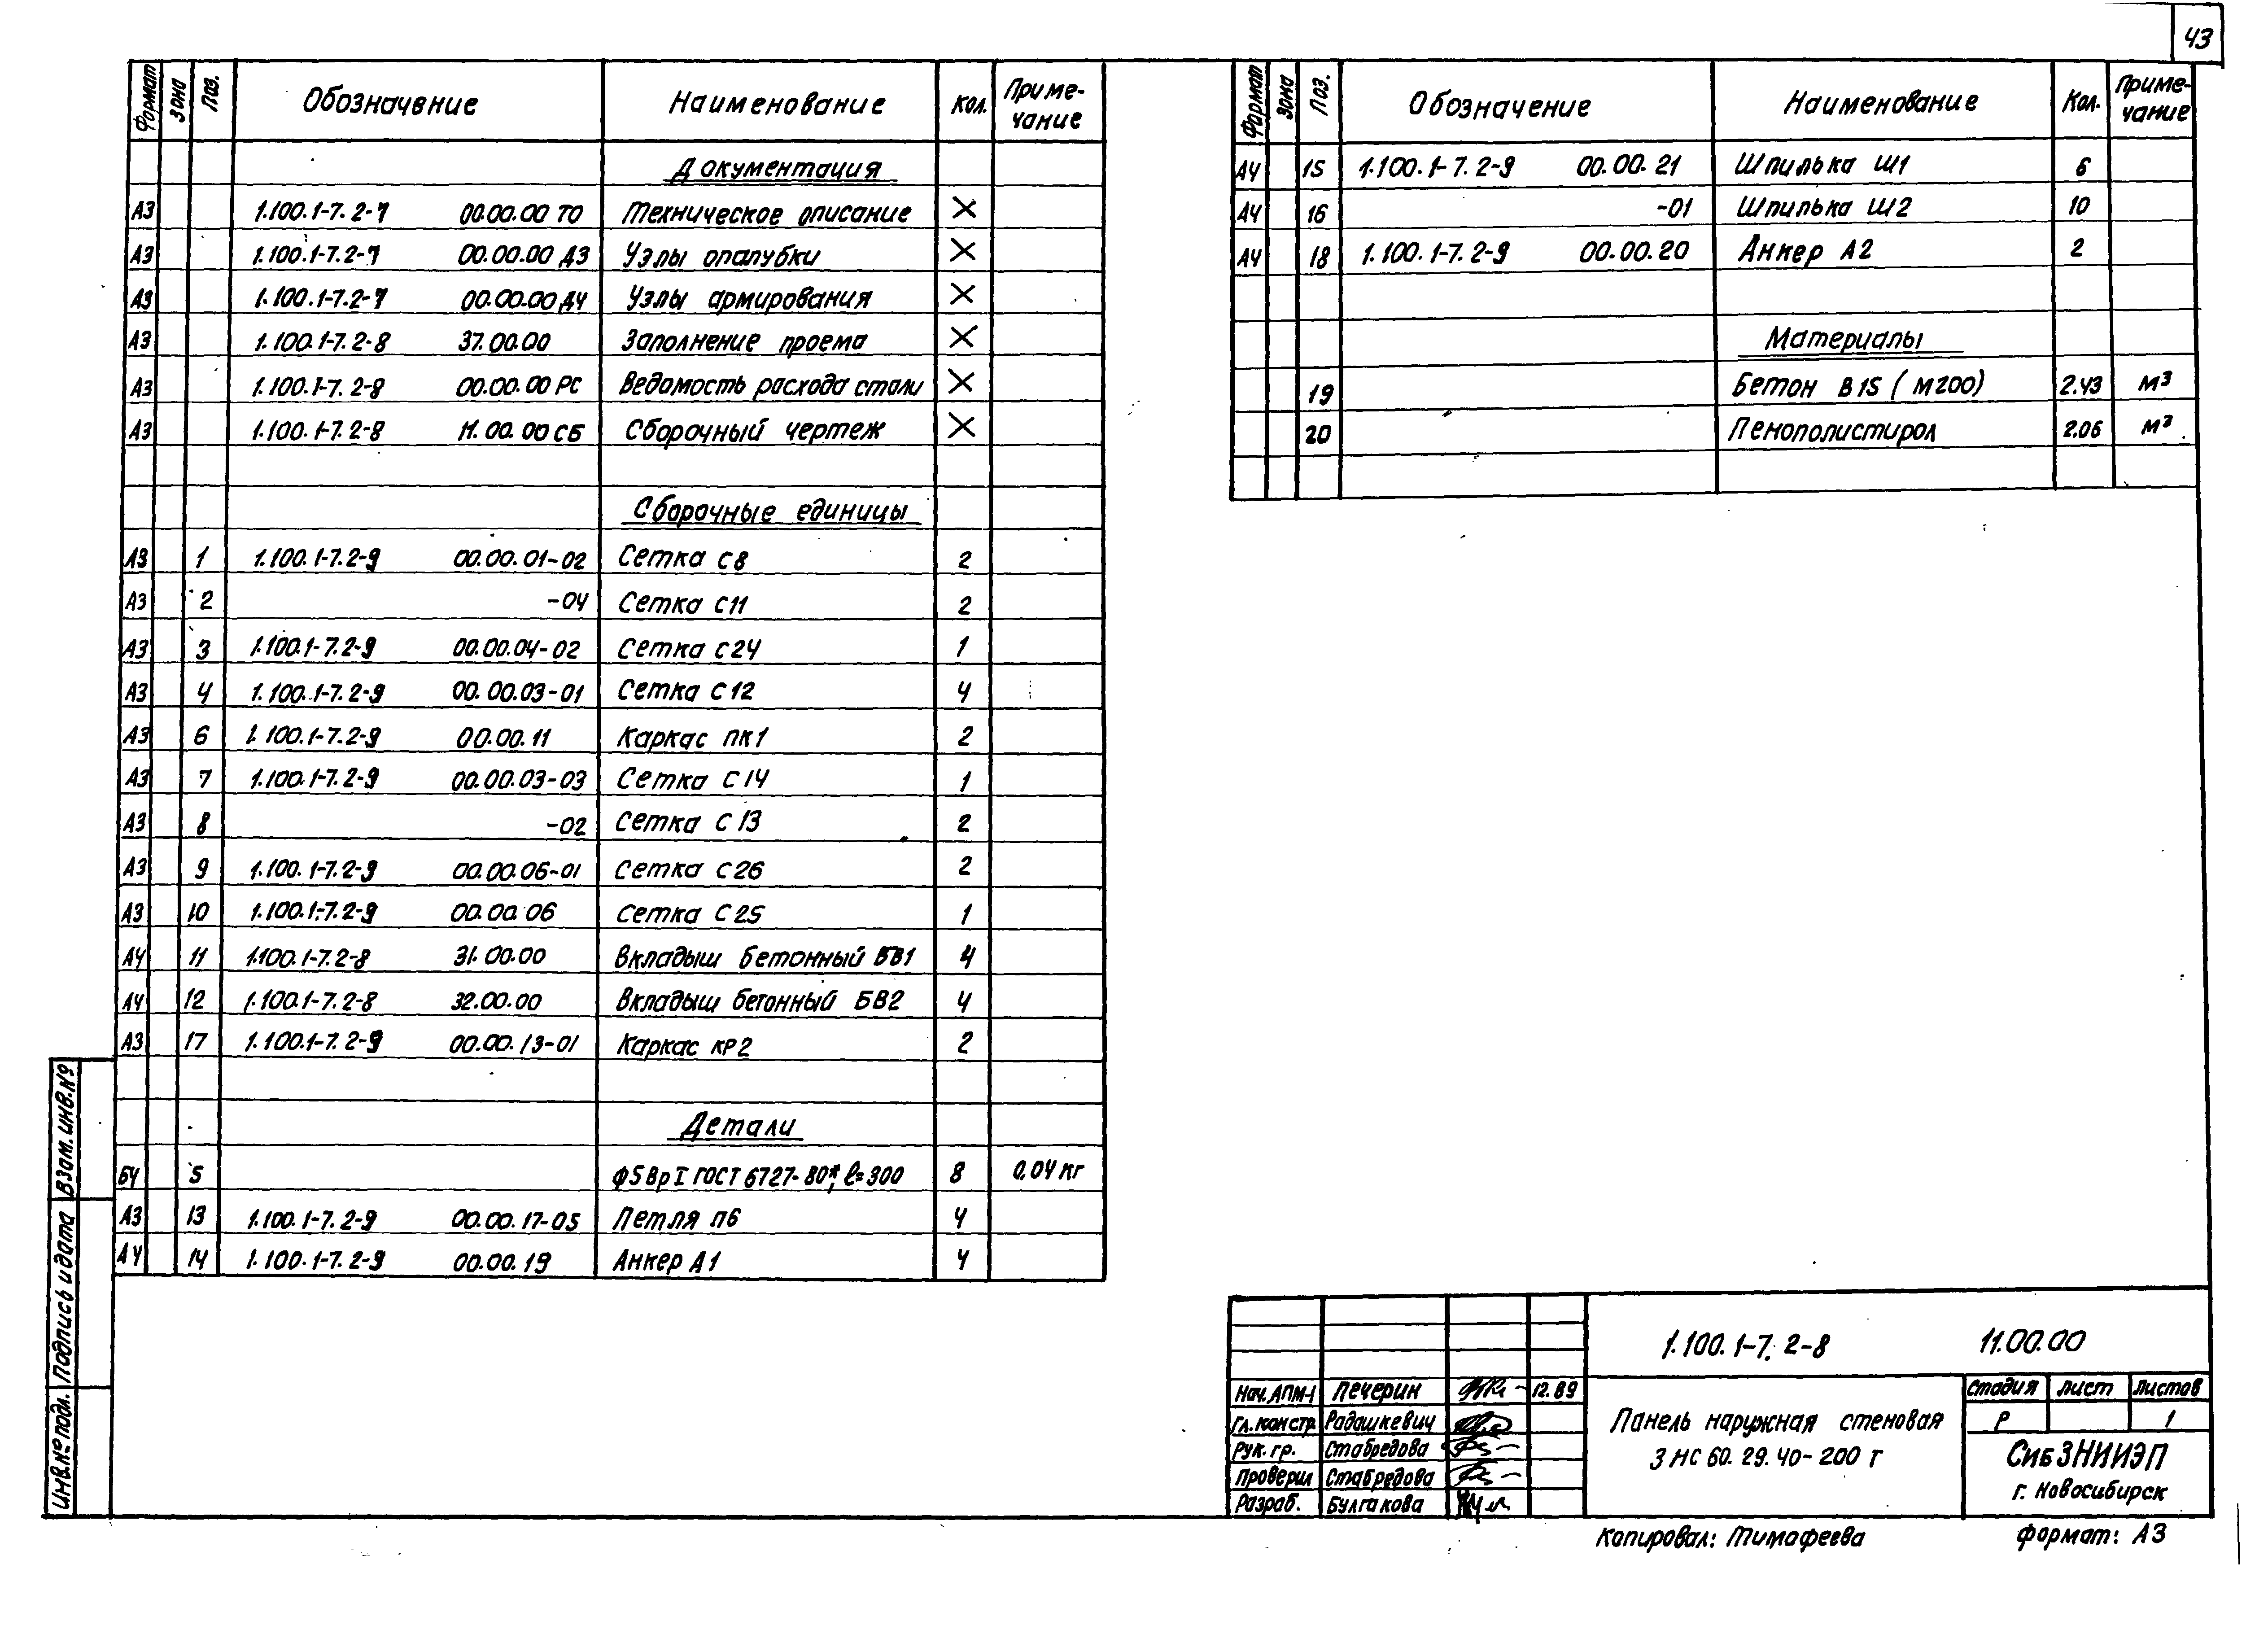 43
Формат Зона Поз. Обозначение Наименование Кол. Приме-чание
Документация
А3 1.100.1-7.2-7 00.00.00 ТО Техническое описание X
А3 1.100.1-7.2-7 00.00.00 Д3 Узлы опалубки X
А3 1.100.1-7.2-7 00.00.00 Д4 Узлы армирования X
А3 1.100.1-7.2-8 37.00.00 Заполнение проема X
А3 1.100.1-7.2-8 00.00.00 РС Ведомость расхода стали X
А3 1.100.1-7.2-8 11.00.00 СБ Сборочный чертеж X
Сборочные единицы
А3 1 1.100.1-7.2-9 00.00.01-02 Сетка С8 2
А3 2 -04 Сетка С11 2
А3 3 1.100.1-7.2-9 00.00.04-02 Сетка С24 1
А3 4 1.100.1-7.2-9 00.00.03-01 Сетка С12 4
А3 6 1.100.1-7.2-9 00.00.11 Каркас ПК1 2
А3 7 1.100.1-7.2-9 00.00.03-03 Сетка С14 1
А3 8 -02 Сетка С13 2
А3 9 1.100.1-7.2-9 00.00.06-01 Сетка С26 2
А3 10 1.100.1-7.2-9 00.00.06 Сетка С25 1
А4 11 1.100.1-7.2-8 31.00.00 Вкладыш бетонный БВ1 4
А4 12 1.100.1-7.2-8 32.00.00 Вкладыш бетонный БВ2 4
А3 17 1.100.1-7.2-9 00.00.13-01 Каркас КР2 2
Детали
БЧ 5 Ф5ВрI ГОСТ 6727-80*, ℓ=300 8 0,04 кг
А3 13 1.100.1-7.2-9 00.00.17-05 Петля П6 4
А4 14 1.100.1-7.2-9 00.00.19 Анкер А1 4
Формат Зона Поз. Обозначение Наименование Кол. Приме-чание
А4 15 1.100.1-7.2-9 00.00.21 Шпилька Ш1 6
А4 16 -01 Шпилька Ш2 10
А4 18 1.100.1-7.2-9 00.00.20 Анкер А2 2
Материалы
19 Бетон В15 (М200) 2.43 м³
20 Пенополистирол 2.06 м³
Инв.№ подл. Подпись и дата Взам.инв.№
1.100.1-7.2-8 11.00.00
Нач.АПМ-1 Печерин 12.89
Гл.констр. Радашкевич
Рук.гр. Стабредова
Проверил Стабредова
Разраб. Булгакова
Панель наружная стеновая
3 НС 60.29.40-200 Т
Стадия Лист Листов
Р 1
СибЗНИИЭП
г. Новосибирск
Копировал: Тимофеева Формат: А3